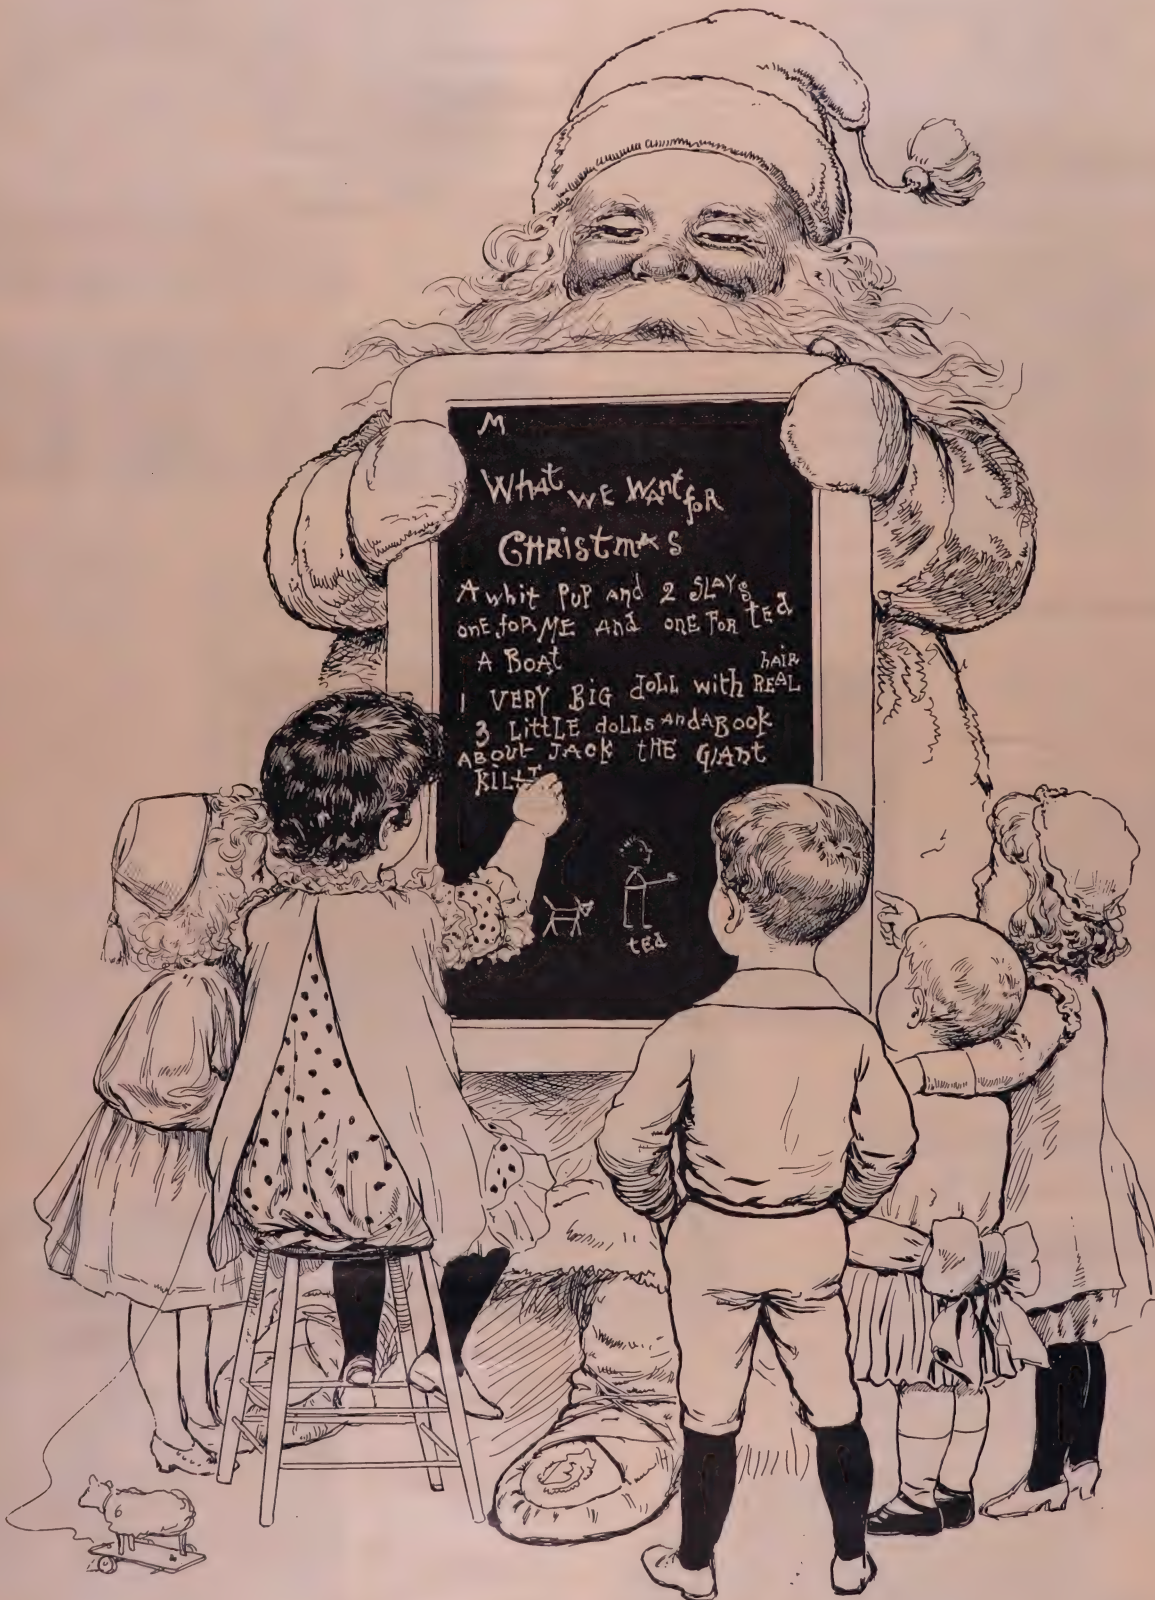 M
What WE Want foR
CHRistmAs
A whit PuP and 2 SLAYs
onE foR ME And onE FoR tEd
A BoAt
1 VERY BiG doLL with REAL hAiR
3 LittLE doLLs And A Book
ABout JACk tHE GiAnt
KiLL
tEd